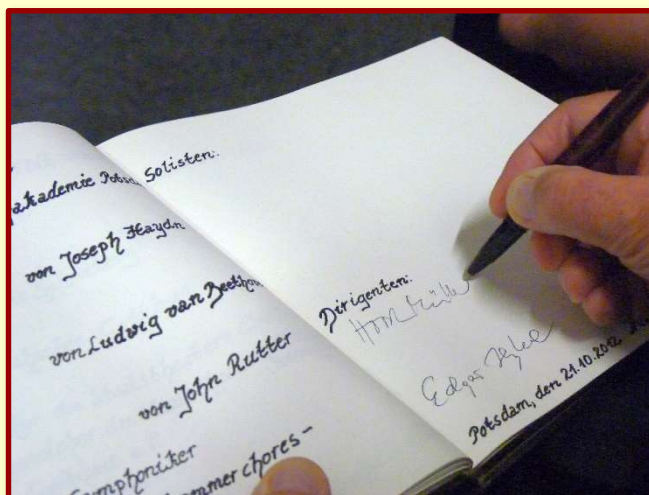 akademie Potsd
von Joseph Haydn
von Ludwig van Beetho
von John Rutter
Symphoniker
mmerchores-
Solisten:
Dirigenten:
Horst Müller
Edgar
Potsdam, den 21.10.2012